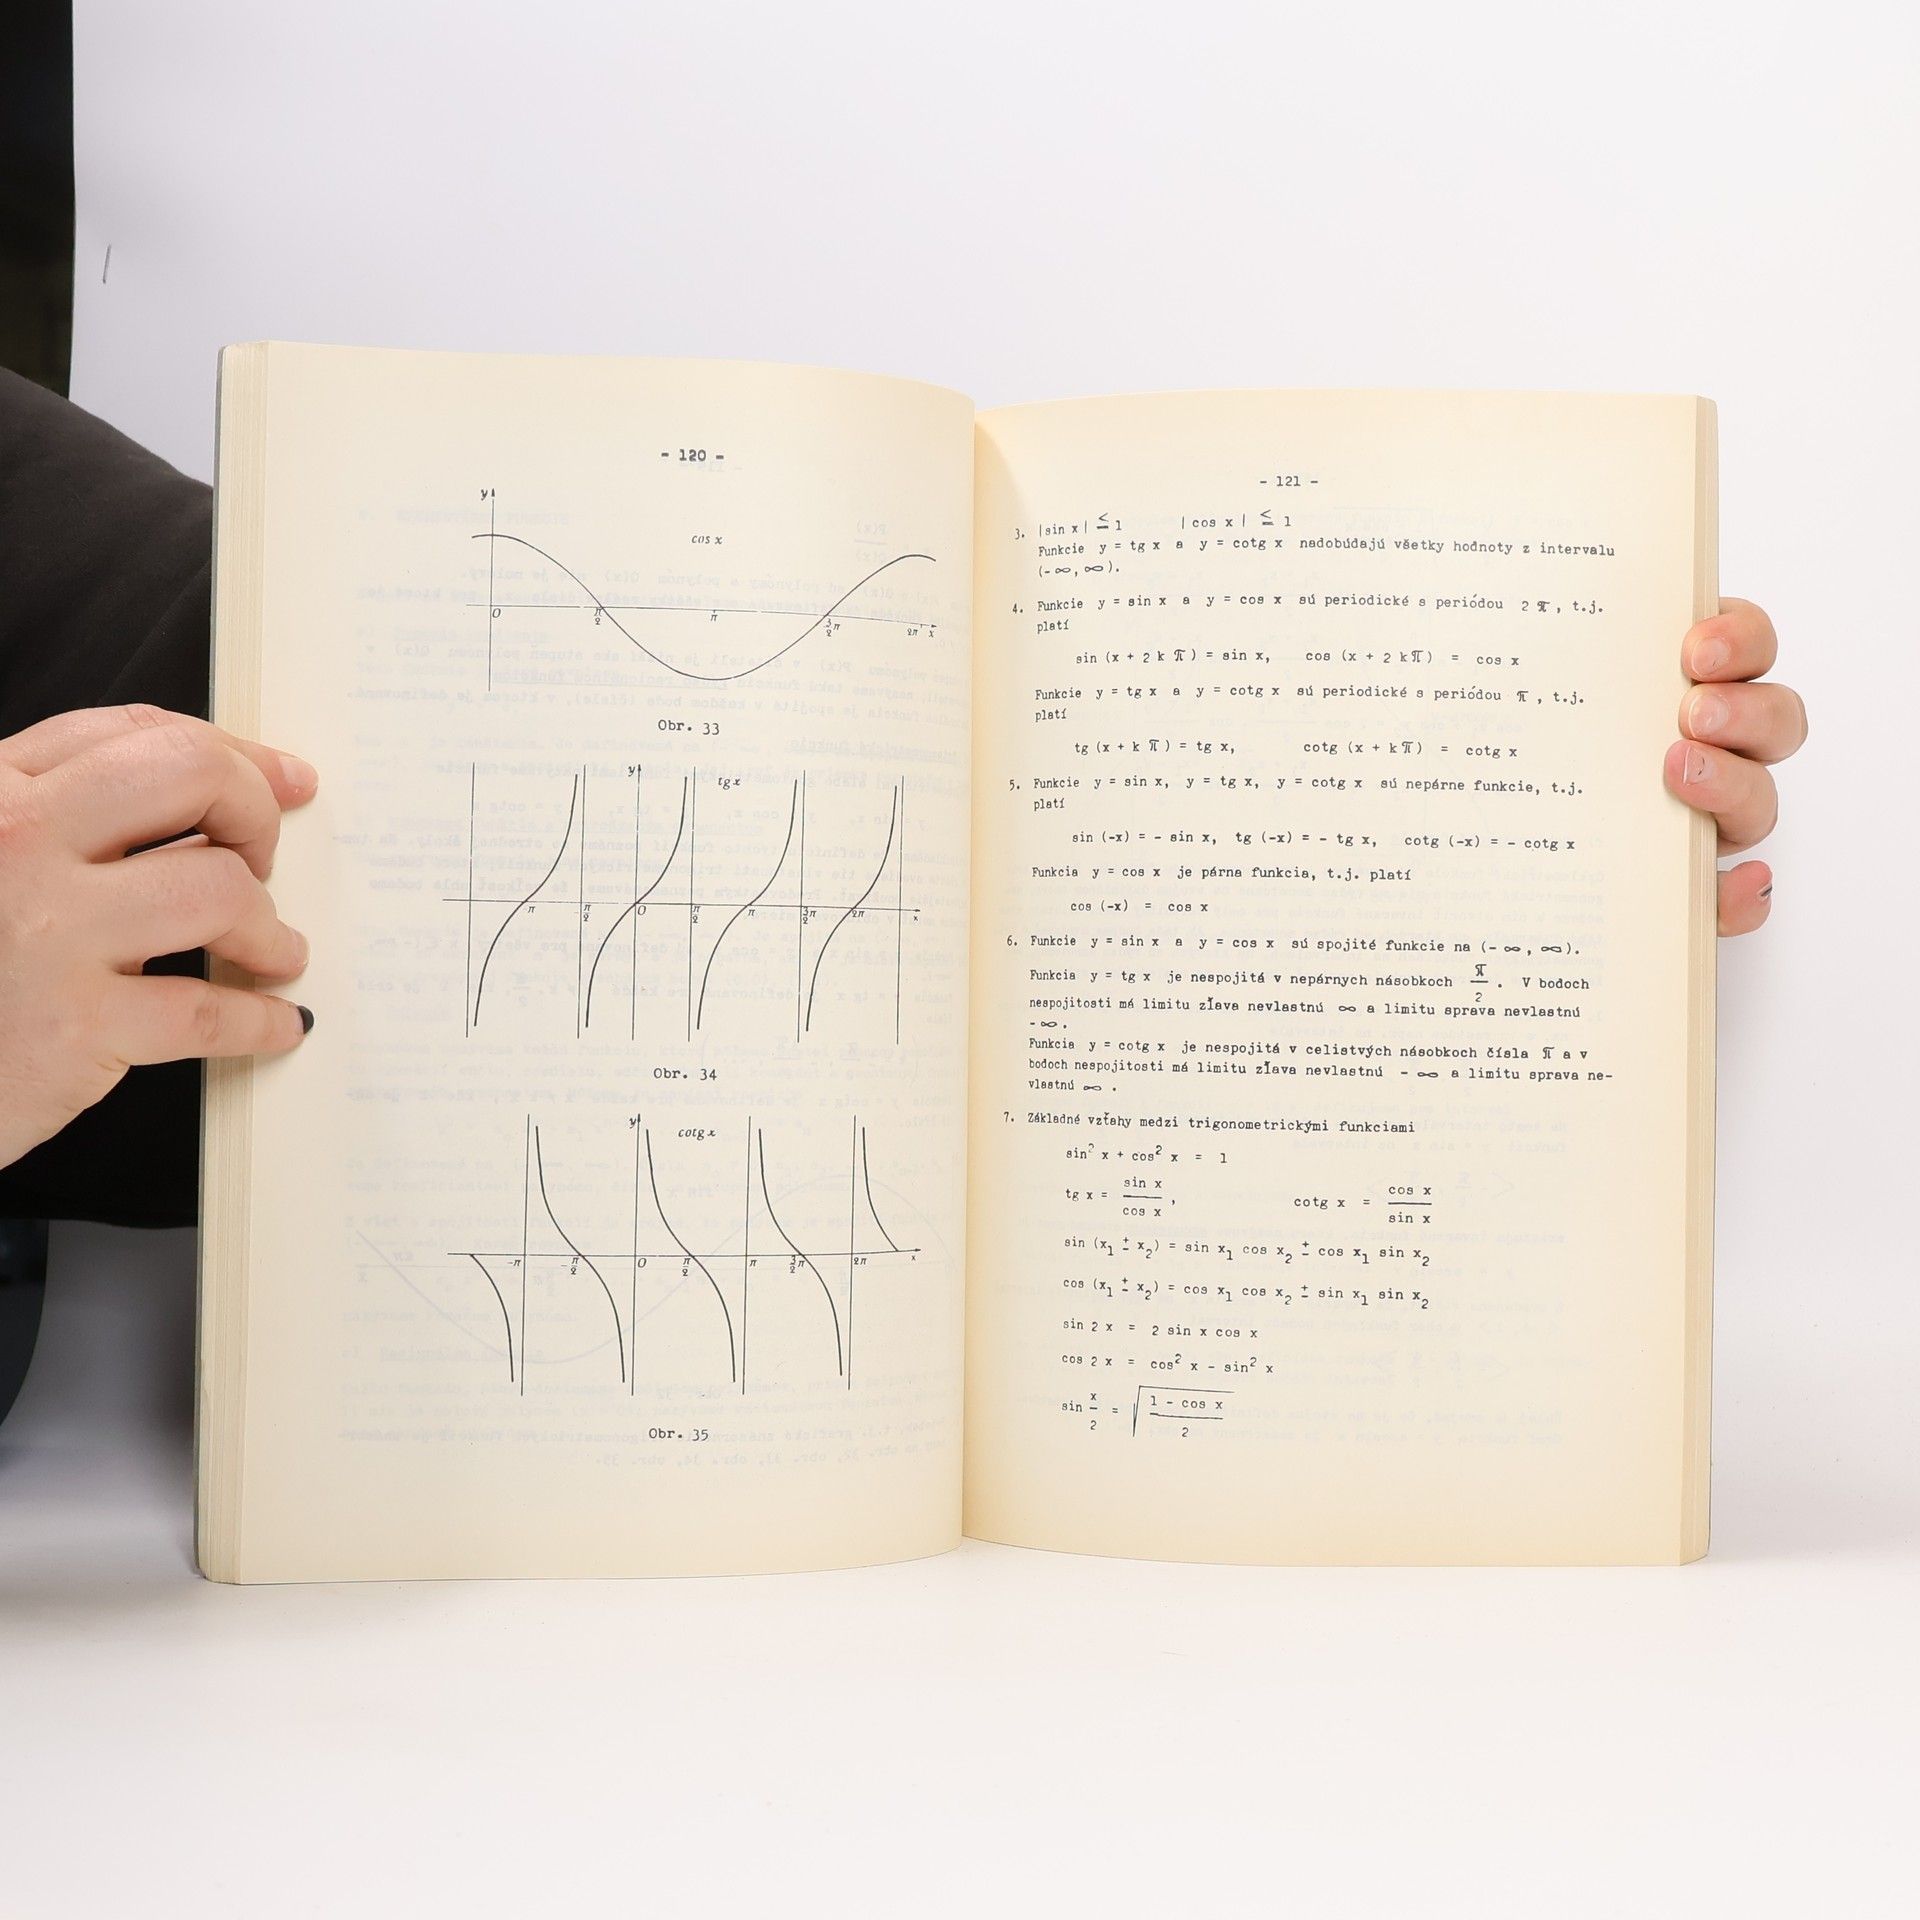 - 120 -
y
cos x
O π/2 π 3/2 π 2π x
Obr. 33
y
tg x
-π π/2 O π/2 π 3/2 π 2π x
Obr. 34
y
cotg x
-π -π/2 O π/2 π 3/2 π 2π x
Obr. 35
- 121 -
3. |sin x| ≤ 1 |cos x| ≤ 1
Funkcie y = tg x a y = cotg x nadobúdajú všetky hodnoty z intervalu
(-∞, ∞).
4. Funkcie y = sin x a y = cos x sú periodické s periódou 2 π, t.j.
platí
sin (x + 2 k π) = sin x, cos (x + 2 kπ) = cos x
Funkcie y = tg x a y = cotg x sú periodické s periódou π, t.j.
platí
tg (x + k π) = tg x, cotg (x + kπ) = cotg x
5. Funkcie y = sin x, y = tg x, y = cotg x sú nepárne funkcie, t.j.
platí
sin (-x) = - sin x, tg (-x) = - tg x, cotg (-x) = - cotg x
Funkcia y = cos x je párna funkcia, t.j. platí
cos (-x) = cos x
6. Funkcie y = sin x a y = cos x sú spojité funkcie na (-∞, ∞).
Funkcia y = tg x je nespojitá v nepárnych násobkoch π/2. V bodoch
nespojitosti má limitu zľava nevlastnú ∞ a limitu sprava nevlastnú
-∞.
Funkcia y = cotg x je nespojitá v celistvých násobkoch čísla π a v
bodoch nespojitosti má limitu zľava nevlastnú -∞ a limitu sprava ne-
vlastnú ∞.
7. Základné vzťahy medzi trigonometrickými funkciami
sin² x + cos² x = 1
tg x = sin x / cos x, cotg x = cos x / sin x
sin (x₁ ± x₂) = sin x₁ cos x₂ ± cos x₁ sin x₂
cos (x₁ ± x₂) = cos x₁ cos x₂ ± sin x₁ sin x₂
sin 2 x = 2 sin x cos x
cos 2 x = cos² x - sin² x
sin x/2 = √((1 - cos x)/2)